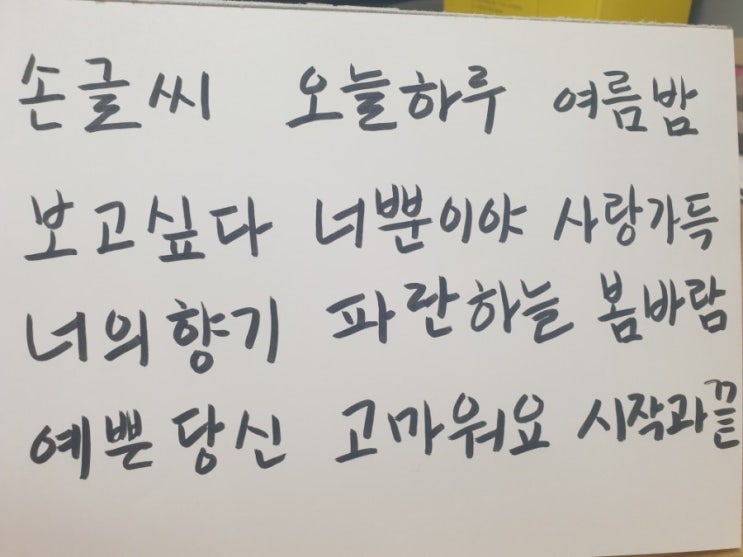 손글씨 오늘하루 여름밤
보고싶다 너뿐이야 사랑가득
너의향기 파란하늘 봄바람
예쁜당신 고마워요 시작과끝